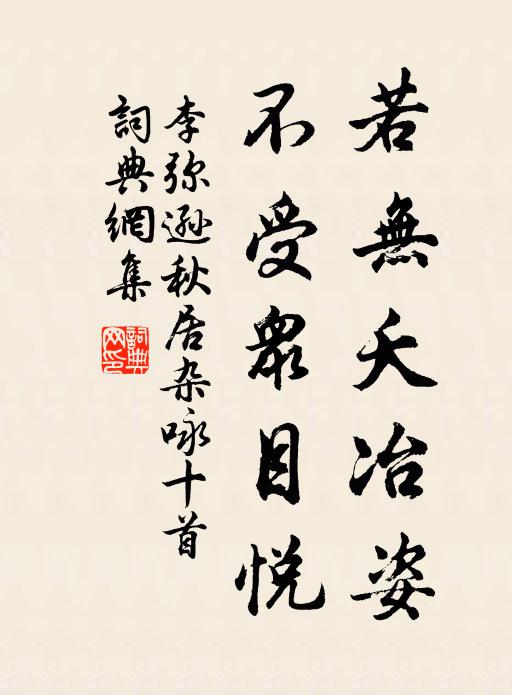 若無夭冶姿
不受眾目悦
李弥遜秋居杂咏十首
詞典網集
詞典網印